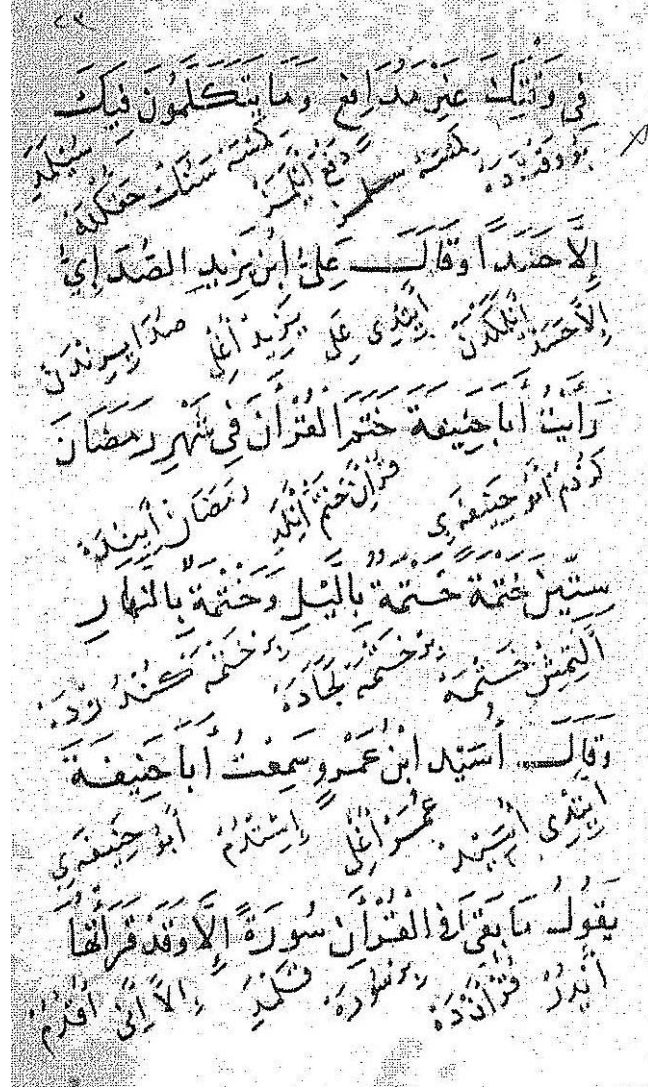 فِي وَقْتِكَ غَيْرَ مَدَافِعٍ وَمَا يَتَكَلَّمُونَ فِيكَ
بُو وَقْتدَه كِمْسَه دَفْعْ اَيْلَمَزْ كِمْسَه سَنكْ
إِلَّا حَسَدًا وَقَالَ عَلِيُّ ابْنُ يَزِيدِ الصُدَاإِيُّ
اِلَّا حَسَدْ أَيِتْدِي عَلِي يَزِيدْ أُغْلِي
رَأَيْتُ أَبَا حَنِيفَةَ خَتَمَ الْقُرْأٰنَ فِي شَهْرِ رَمَضَانَ
كُرْدُمْ اَبُو حَنِيفَه يِ قُرْاٰنْ خَتْمْ اَيْلَدِ رَمَضَانْ أَيِنْدَه
سِتِّينَ خَتْمَةً خَتْمَةً بِالَّيْلِ وَخَتْمَةً بِالنَّهَارِ
اَلْتِمِشْ خَتْمَه بِرْ خَتْمَه كَجَادَه بِرْ خَتْمَه كُنْدُزْدَه
وَقَالَ أُسَيْدِ ابْنُ عَمْرٍو سَمِعْتُ أَبَا حَنِيفَةَ
اَيِتْدِي أُسَيْدْ عُمَرْ اُغْلِي اِشِتْدُمْ أَبُو حَنِيفَه يِ
يَقُولُ مَا بَقِيَ فِي الْقُرْأٰنِ سُورَةً إِلَّا وَقَدْ قَرَأْتُهَا
أَيْدُرْ قُرْاٰنْدَه بِرْ سُورَه قَلْمَدِ اِلَّا اَنِي اُقُدُمْ